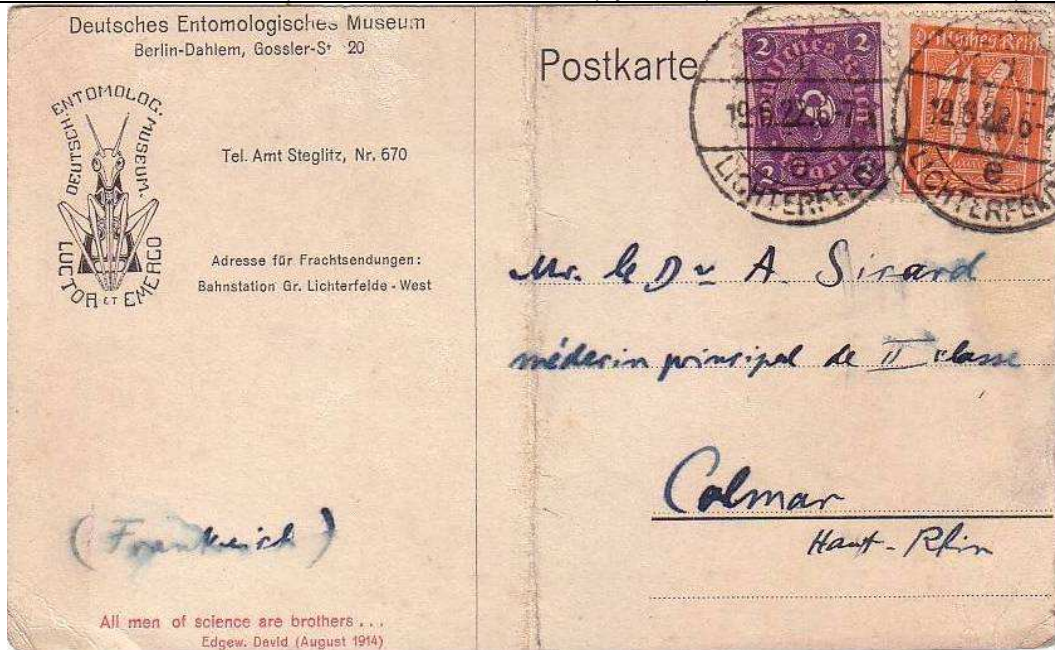 Deutsches Entomologisches Museum
Berlin-Dahlem, Gossler-St 20
DEUTSCH. ENTOMOLOG. MUSEUM.
LUCTOR ET EMERGO
Tel. Amt Steglitz, Nr. 670
Adresse für Frachtsendungen:
Bahnstation Gr. Lichterfelde - West
(Frankreich)
All men of science are brothers ...
Edgew. David (August 1914)
Postkarte
2 2
Deutsches Reich
2 2
Deutsches Reich
10
19.6.22. 6-7
LICHTERFELDE
e
LICHTERFELDE
Mr. le Dr A. Sicard
médecin principal de II classe
Colmar
Haut-Rhin